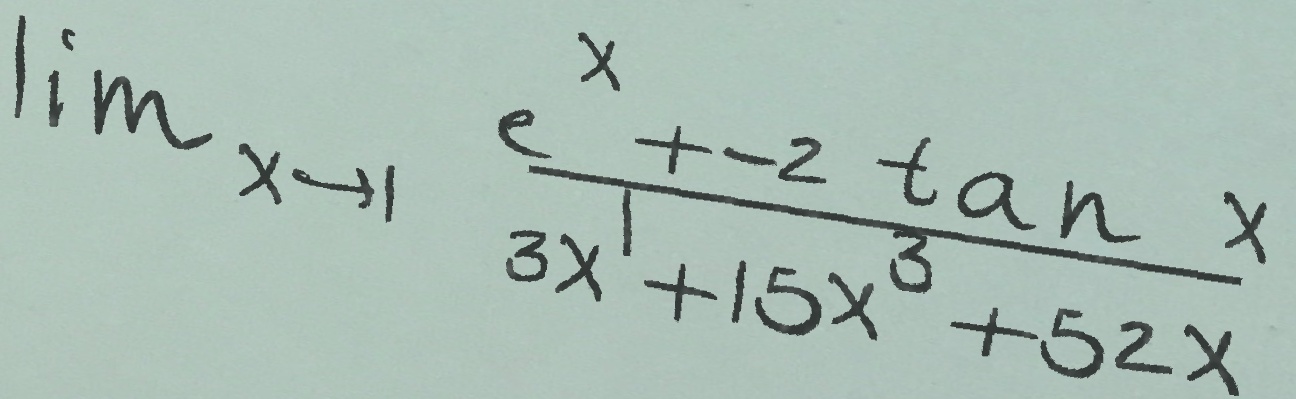 lim x→1 (e^x + -2 tan x) / (3x^1 + 15x^3 + 52x)